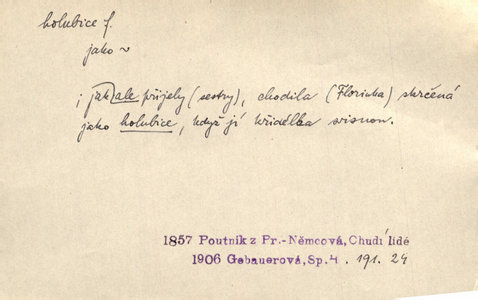 holubice f.
jako ~
; jak ale přijely (sestry), chodila (Florinka) skrčená
jako holubice, když jí křidélka svisnou.
1857 Poutník z Pr.-Němcová, Chudí lidé
1906 Gebauerová, Sp. 4. 191. 24